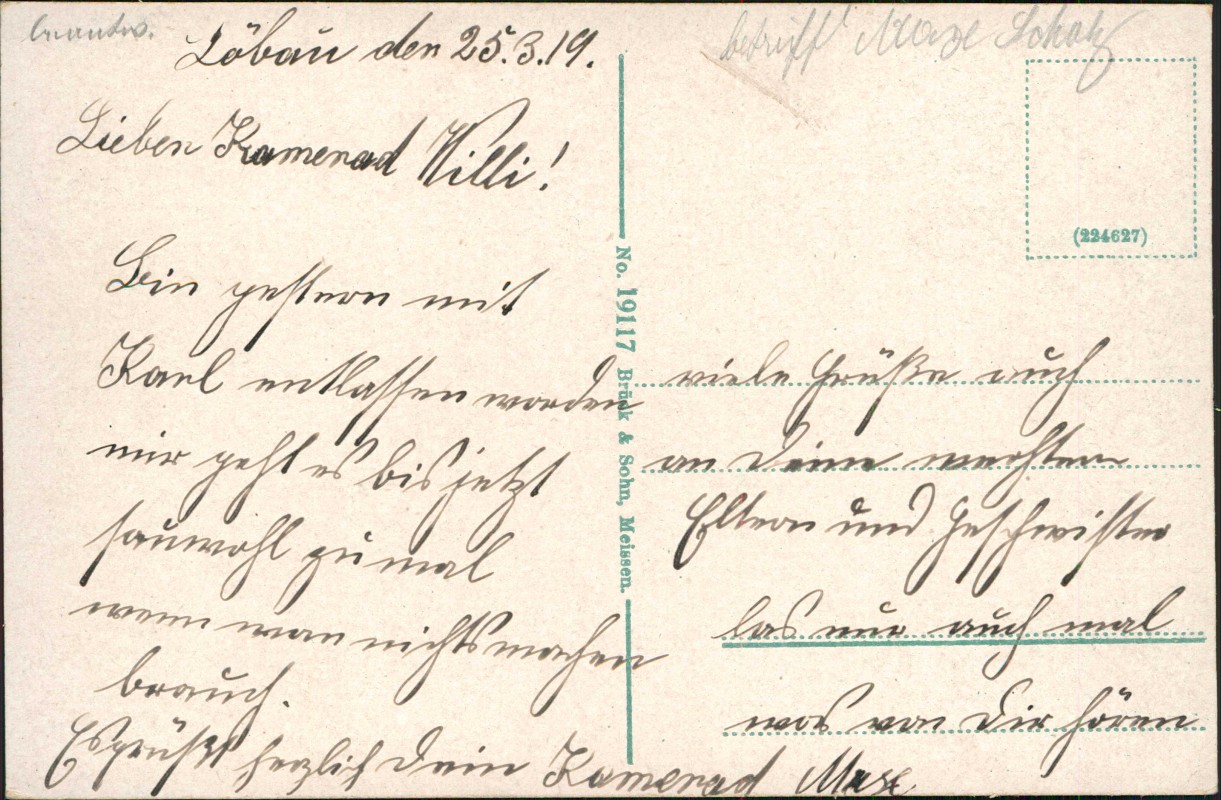 beantw.
Löbau den 25.3.19.
Lieben Kamerad Willi!
Bin gestern mit
Karl entlassen worden
mir geht es bis jetzt
sauwohl zumal
wenn man nichts machen
brauch.
Es grüßt herzlich Dein Kamerad Max
betriff Maxe Scholz
(224627)
No. 19117 Brück & Sohn, Meissen.
viele Grüße auch
an Deine werthen
Eltern und Geschwister
las nur auch mal
was von Dir hören